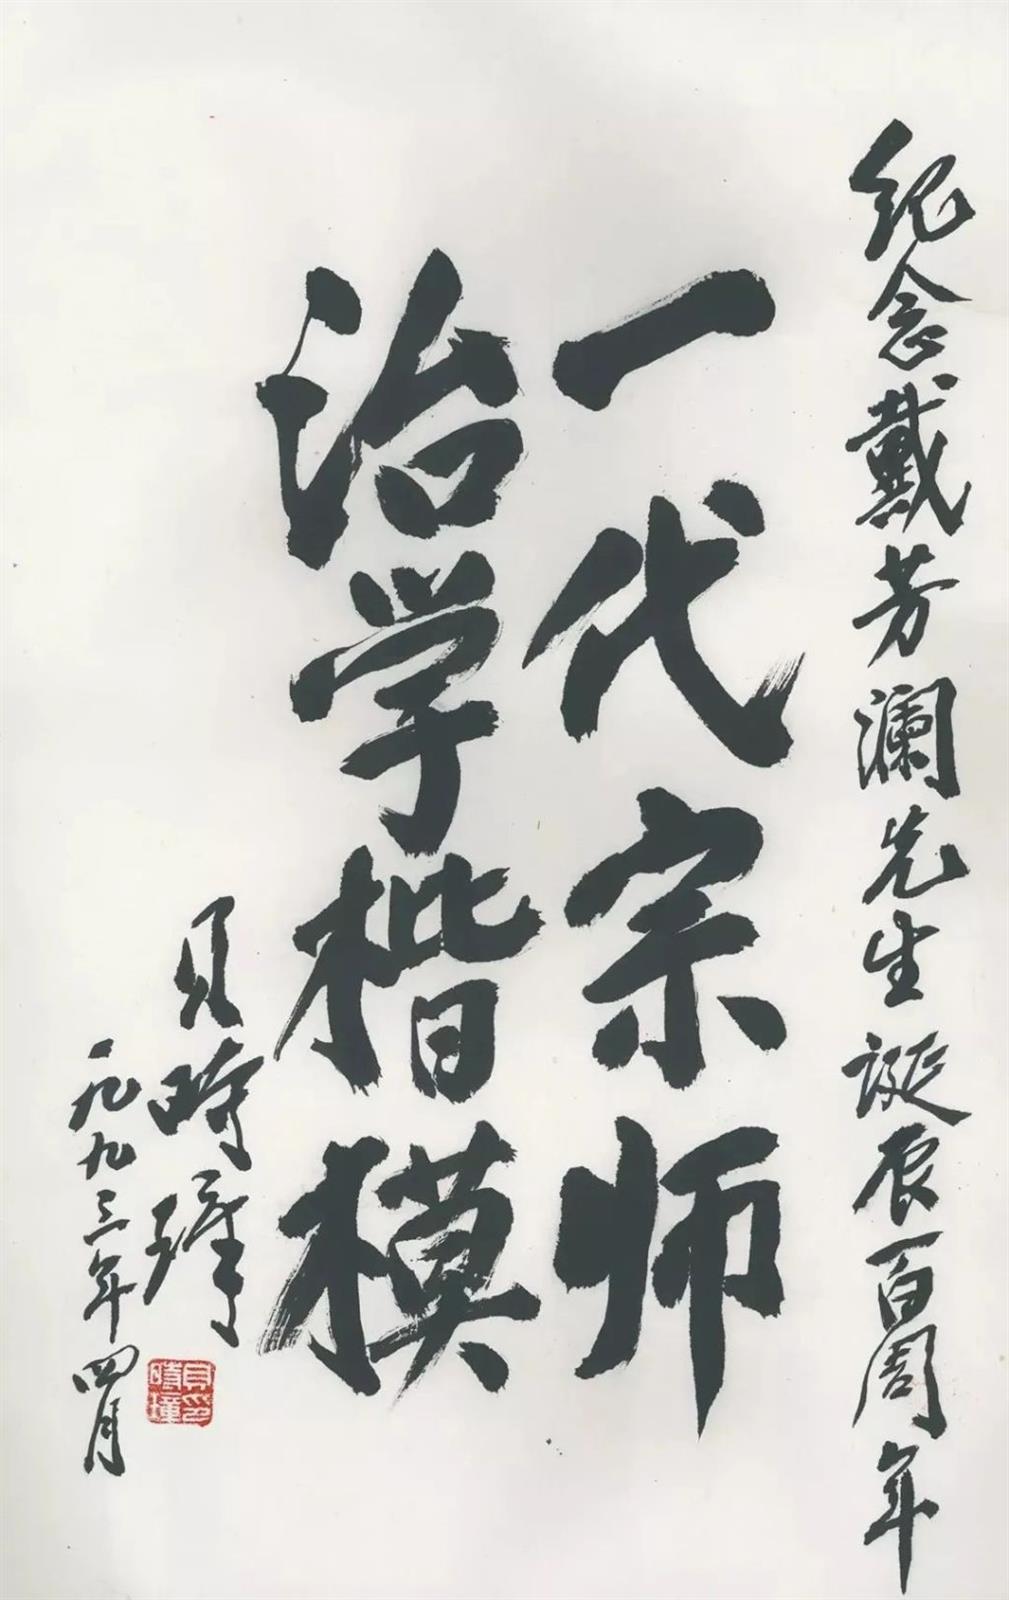 纪念戴芳澜先生诞辰百周年
一代宗师
治学楷模
贝時璋
一九九三年四月
貝印
時璋